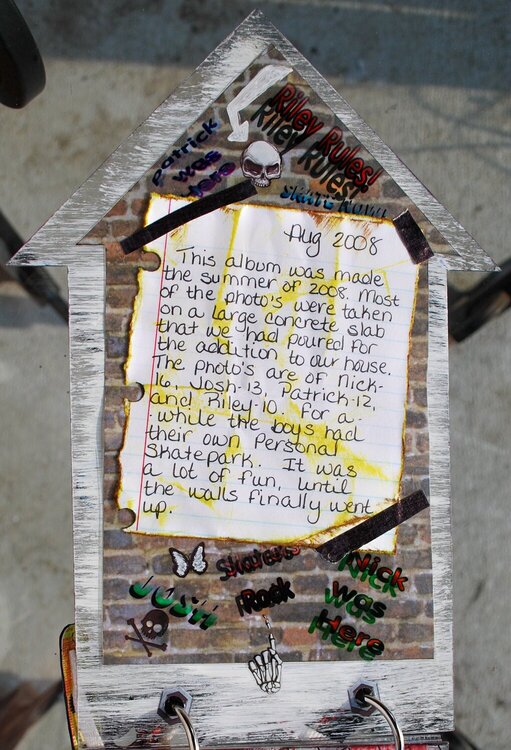 Riley Rules!
Riley Rules
Patrick
was
Here
Aug 2008
This album was made
the summer of 2008. Most
of the photo's were taken
on a large concrete slab
that we had poured for
the addition to our house.
The photo's are of Nick-
16, Josh-13, Patrick-12,
and Riley-10. For a
while the boys had
their own Personal
Skatepark. It was
a lot of fun, until
the walls finally went
up.
Skaters
Rock
JOSH
Nick
was
Here